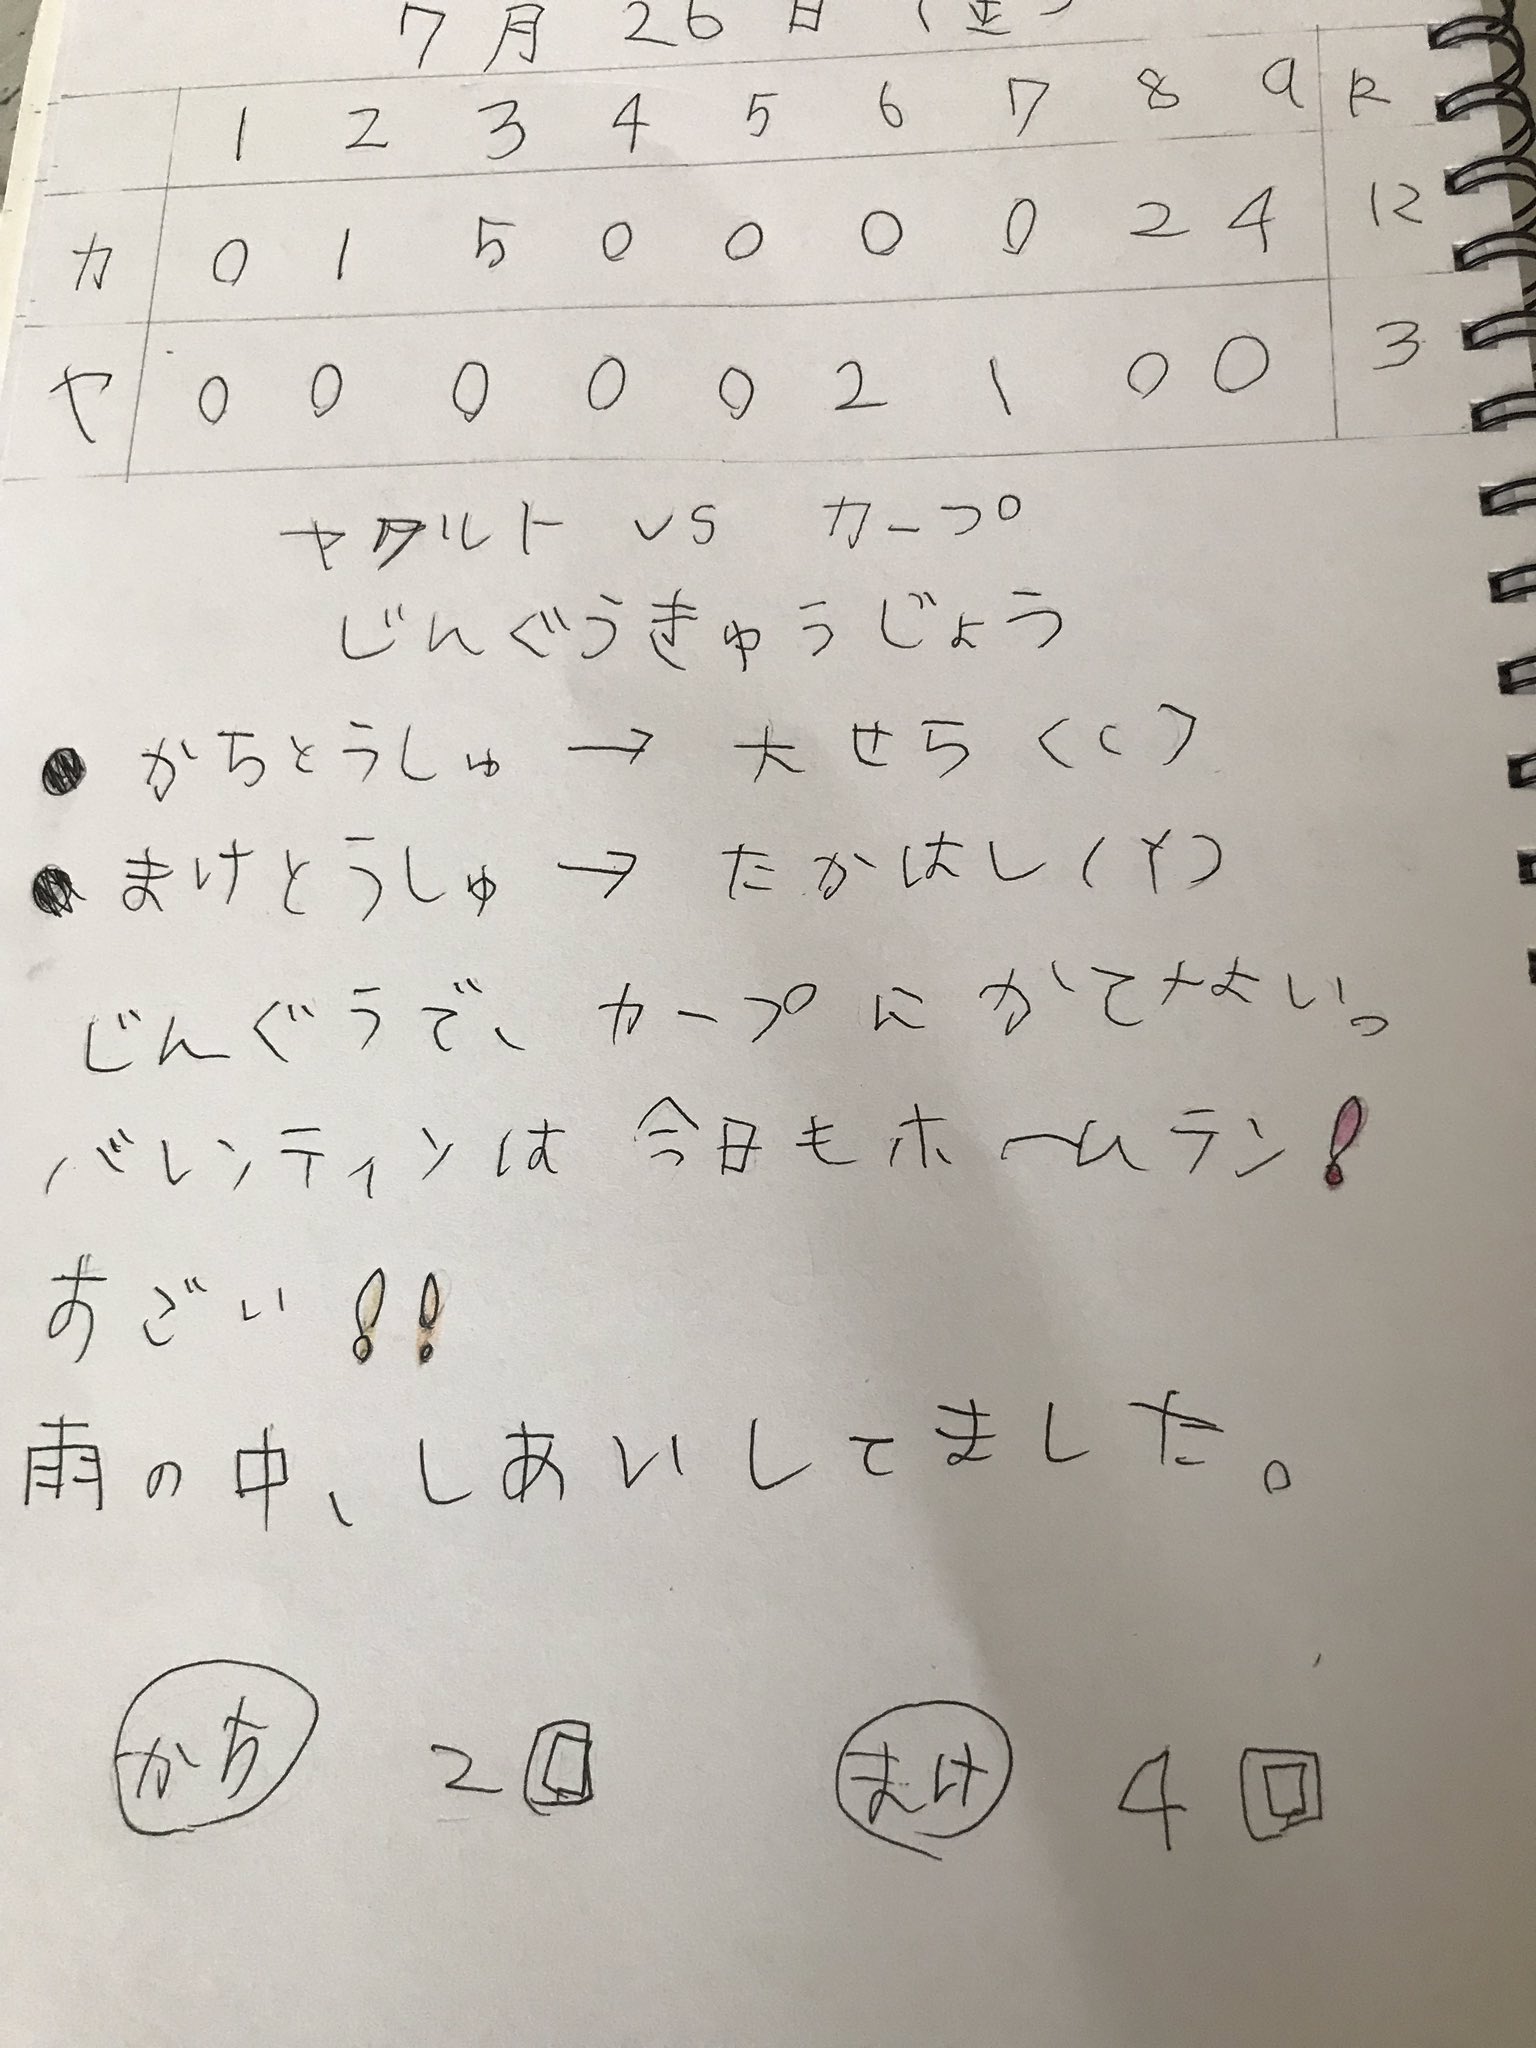 7月26日(金)
1 2 3 4 5 6 7 8 9 R
カ 0 1 5 0 0 0 0 2 4 12
ヤ 0 0 0 0 0 2 1 0 0 3
ヤクルト vs カープ
じんぐうきゅうじょう
● かちとうしゅ → 大せら(C)
● まけとうしゅ → たかはし(Y)
じんぐうで、カープにかてない。
バレンティンは今日もホームラン!
すごい!!
雨の中、しあいしてました。
かち 2回 まけ 4回